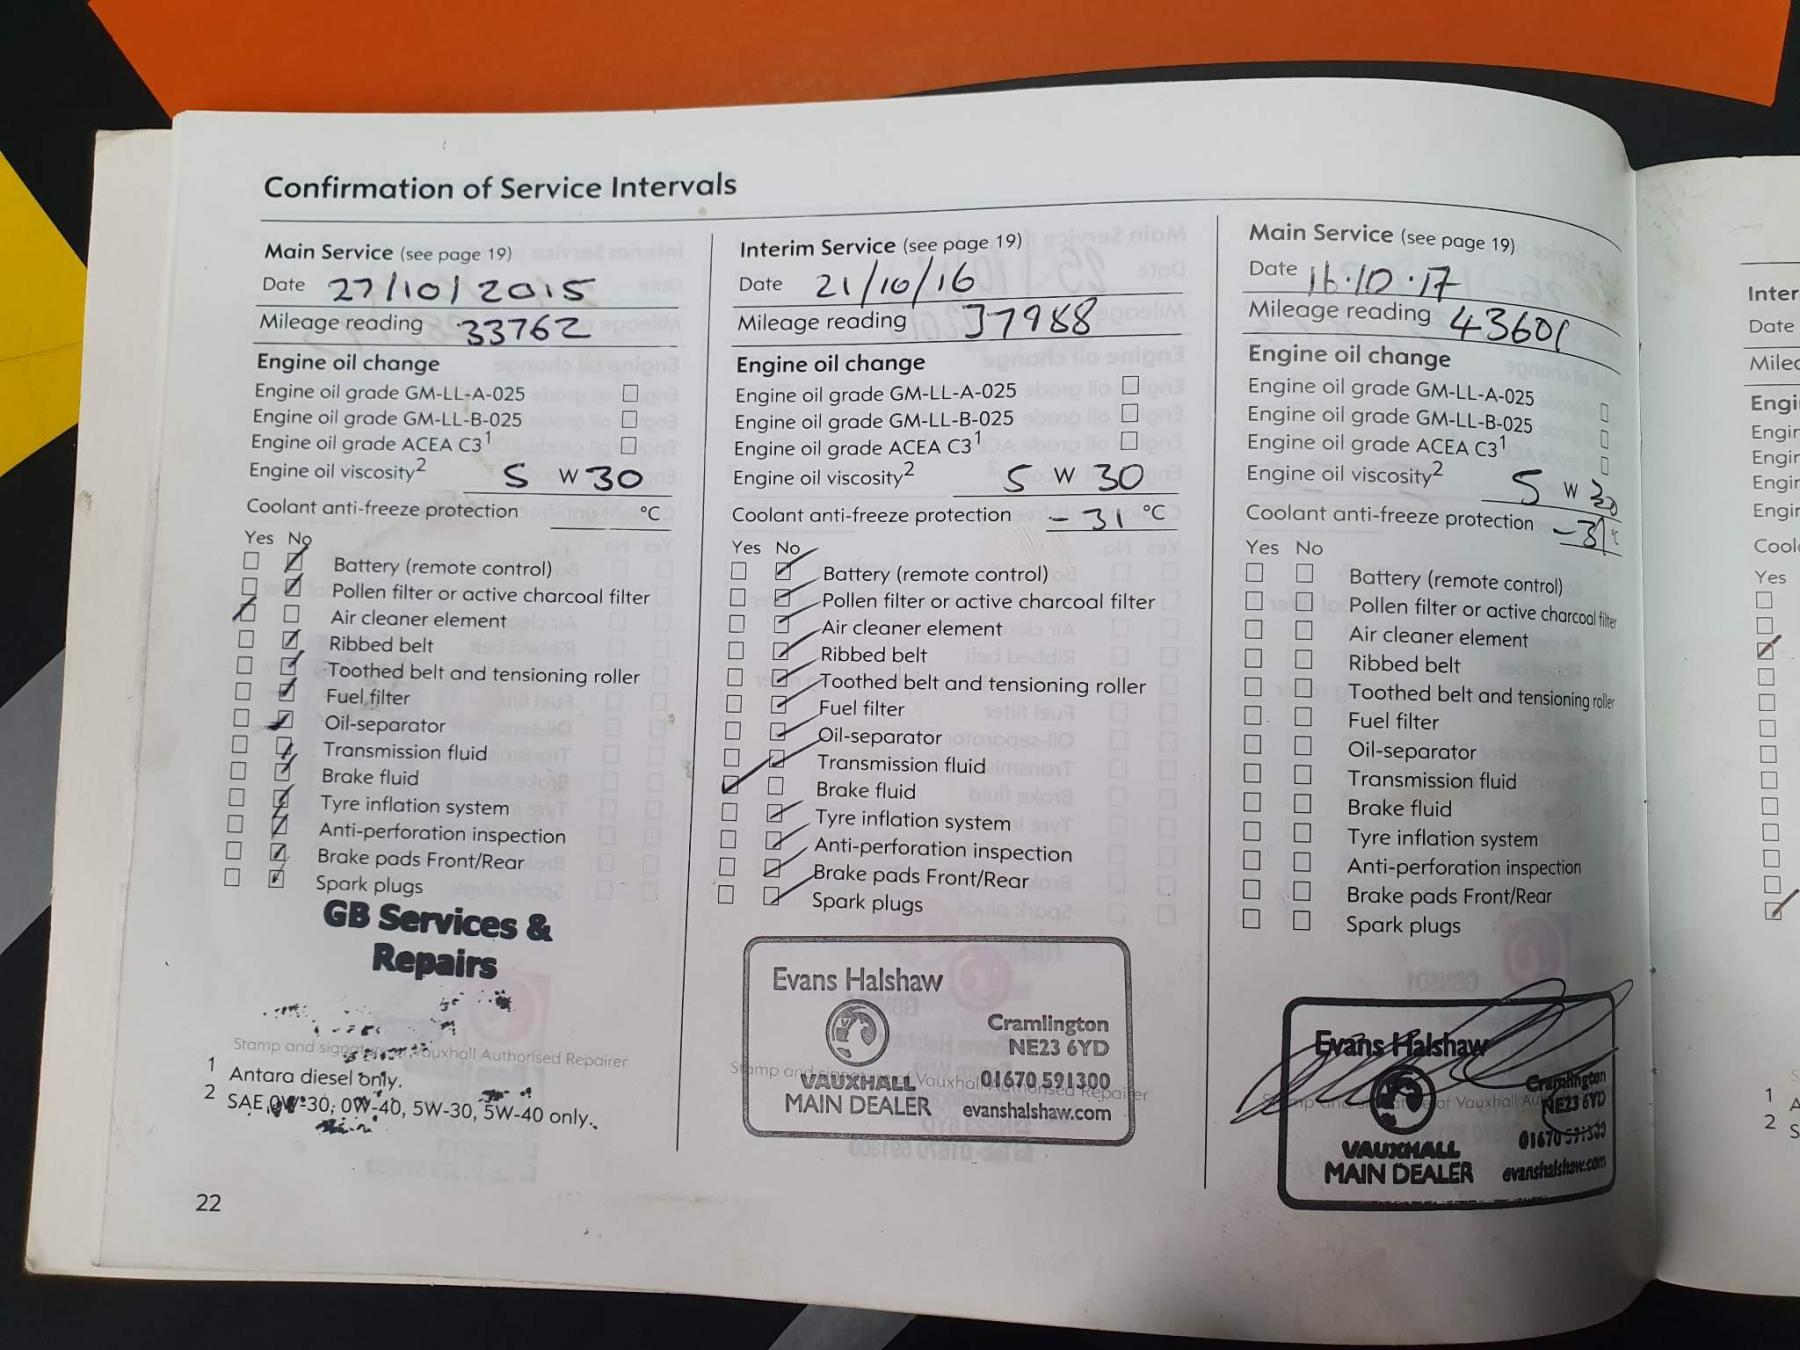 Confirmation of Service Intervals
Main Service (see page 19)
Date 27/10/2015
Mileage reading 33762
Engine oil change
Engine oil grade GM-LL-A-025
Engine oil grade GM-LL-B-025
Engine oil grade ACEA C3¹
Engine oil viscosity² 5 W 30
Coolant anti-freeze protection °C
Yes No
Battery (remote control)
Pollen filter or active charcoal filter
Air cleaner element
Ribbed belt
Toothed belt and tensioning roller
Fuel filter
Oil-separator
Transmission fluid
Brake fluid
Tyre inflation system
Anti-perforation inspection
Brake pads Front/Rear
Spark plugs
GB Services &
Repairs
Stamp and signature of Vauxhall Authorised Repairer
1 Antara diesel only.
2 SAE 0W-30, 0W-40, 5W-30, 5W-40 only.
22
Interim Service (see page 19)
Date 21/10/16
Mileage reading 37988
Engine oil change
Engine oil grade GM-LL-A-025
Engine oil grade GM-LL-B-025
Engine oil grade ACEA C3¹
Engine oil viscosity² 5 W 30
Coolant anti-freeze protection -31 °C
Yes No
Battery (remote control)
Pollen filter or active charcoal filter
Air cleaner element
Ribbed belt
Toothed belt and tensioning roller
Fuel filter
Oil-separator
Transmission fluid
Brake fluid
Tyre inflation system
Anti-perforation inspection
Brake pads Front/Rear
Spark plugs
Evans Halshaw
Cramlington
NE23 6YD
Stamp and signature of Vauxhall Authorised Repairer
VAUXHALL 01670 591300
MAIN DEALER evanshalshaw.com
Main Service (see page 19)
Date 16.10.17
Mileage reading 43601
Engine oil change
Engine oil grade GM-LL-A-025
Engine oil grade GM-LL-B-025
Engine oil grade ACEA C3¹
Engine oil viscosity² 5 W 30
Coolant anti-freeze protection -31 °C
Yes No
Battery (remote control)
Pollen filter or active charcoal filter
Air cleaner element
Ribbed belt
Toothed belt and tensioning roller
Fuel filter
Oil-separator
Transmission fluid
Brake fluid
Tyre inflation system
Anti-perforation inspection
Brake pads Front/Rear
Spark plugs
Evans Halshaw
Cramlington
NE23 6YD
Stamp and of Vauxhall
01670 591300
VAUXHALL
MAIN DEALER evanshalshaw.com
Inter
Date
Milea
Engi
Engin
Engin
Engir
Engir
Cool
Yes
1 A
2 S